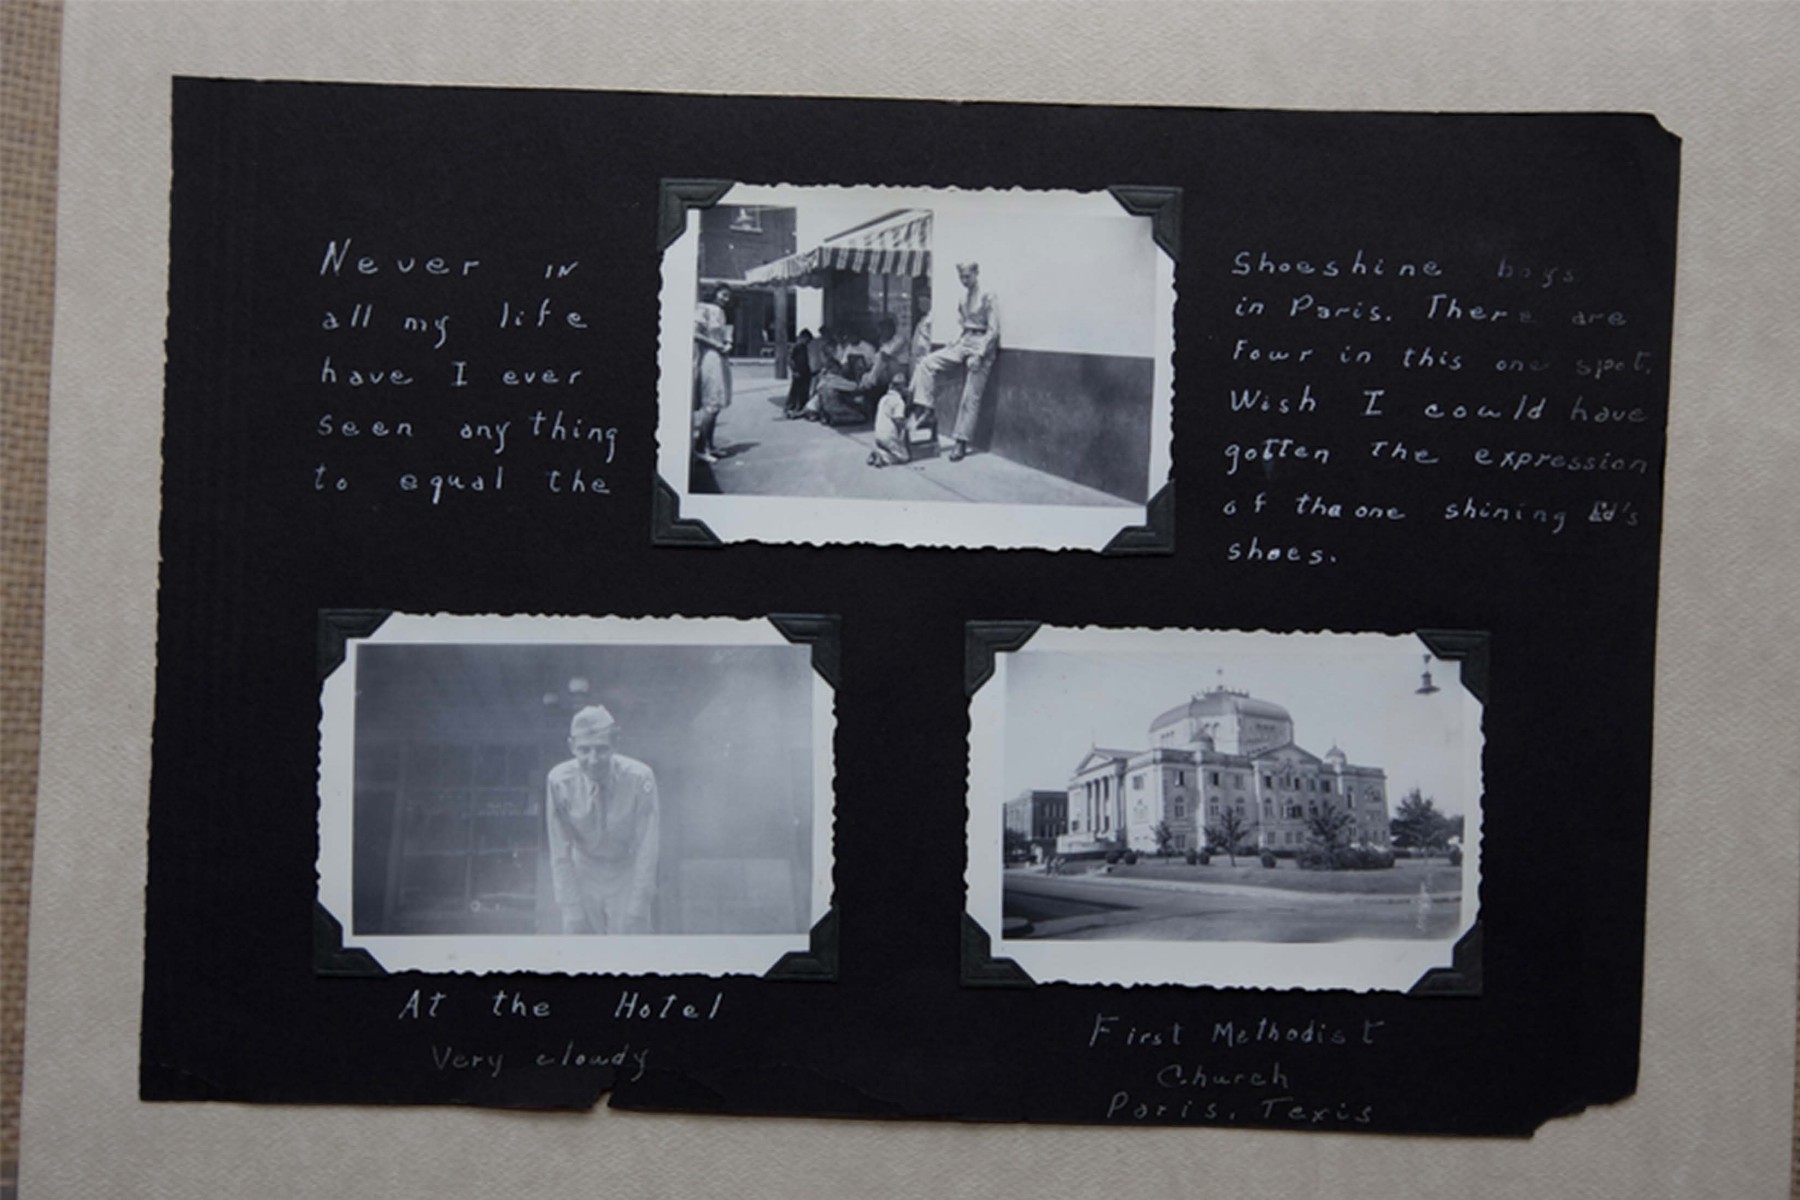 Never in
all my life
have I ever
seen anything
to equal the
Shoeshine boys
in Paris. There are
Four in this one spot.
Wish I could have
gotten the expression
of the one shining Ed's
shoes.
At the Hotel
Very cloudy
First Methodist
Church
Paris, Texis